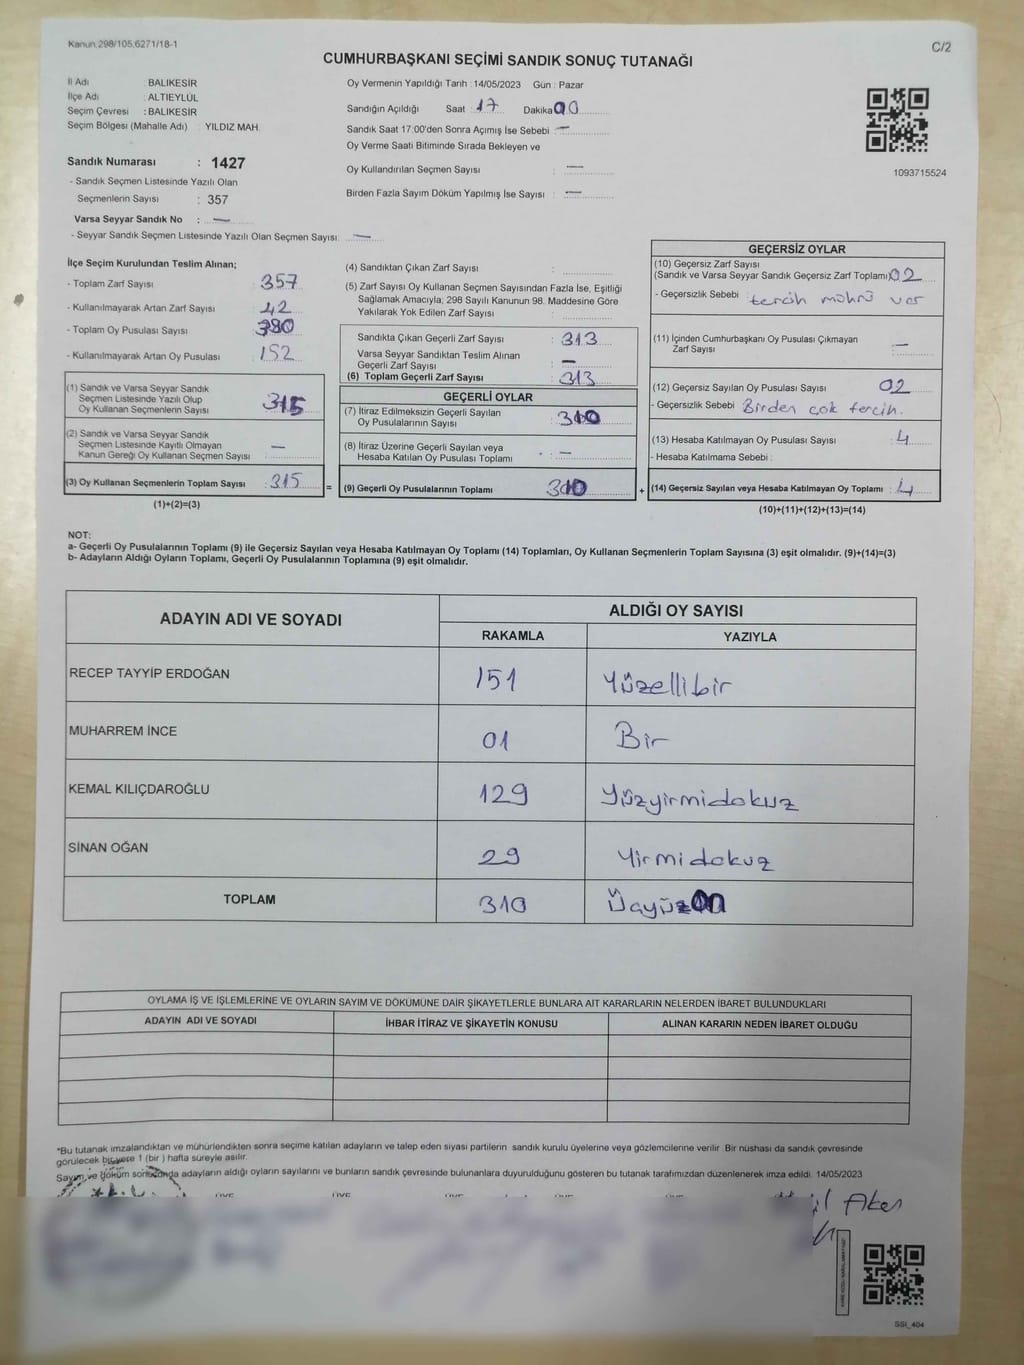 Kanun.298/105,6271/18-1
C/2
CUMHURBAŞKANI SEÇİMİ SANDIK SONUÇ TUTANAĞI
İl Adı : BALIKESİR
İlçe Adı : ALTIEYLÜL
Seçim Çevresi : BALIKESİR
Seçim Bölgesi (Mahalle Adı) : YILDIZ MAH.
Oy Vermenin Yapıldığı Tarih : 14/05/2023 Gün : Pazar
Sandığın Açıldığı Saat : 17 Dakika 00
Sandık Saat 17:00'den Sonra Açımış İse Sebebi : —
Oy Verme Saati Bitiminde Sırada Bekleyen ve
Oy Kullandırılan Seçmen Sayısı : —
Birden Fazla Sayım Döküm Yapılmış İse Sayısı : —
1093715524
Sandık Numarası : 1427
- Sandık Seçmen Listesinde Yazılı Olan
Seçmenlerin Sayısı : 357
Varsa Seyyar Sandık No : —
- Seyyar Sandık Seçmen Listesinde Yazılı Olan Seçmen Sayısı: —
İlçe Seçim Kurulundan Teslim Alınan;
- Toplam Zarf Sayısı : 357
- Kullanılmayarak Artan Zarf Sayısı : 42
- Toplam Oy Pusulası Sayısı : 380
- Kullanılmayarak Artan Oy Pusulası : 152
(1) Sandık ve Varsa Seyyar Sandık
Seçmen Listesinde Yazılı Olup
Oy Kullanan Seçmenlerin Sayısı : 315
(2) Sandık ve Varsa Seyyar Sandık
Seçmen Listesinde Kayıtlı Olmayan
Kanun Gereği Oy Kullanan Seçmen Sayısı : —
(3) Oy Kullanan Seçmenlerin Toplam Sayısı : 315
(1)+(2)=(3)
(4) Sandıktan Çıkan Zarf Sayısı :
(5) Zarf Sayısı Oy Kullanan Seçmen Sayısından Fazla İse, Eşitliği
Sağlamak Amacıyla; 298 Sayılı Kanunun 98. Maddesine Göre
Yakılarak Yok Edilen Zarf Sayısı :
Sandıkta Çıkan Geçerli Zarf Sayısı : 313
Varsa Seyyar Sandıktan Teslim Alınan
Geçerli Zarf Sayısı : —
(6) Toplam Geçerli Zarf Sayısı : 313
GEÇERLİ OYLAR
(7) İtiraz Edilmeksizin Geçerli Sayılan
Oy Pusulalarının Sayısı : 310
(8) İtiraz Üzerine Geçerli Sayılan veya
Hesaba Katılan Oy Pusulası Toplamı : —
= (9) Geçerli Oy Pusulalarının Toplamı 310
GEÇERSİZ OYLAR
(10) Geçersiz Zarf Sayısı
(Sandık ve Varsa Seyyar Sandık Geçersiz Zarf Toplamı) 02
- Geçersizlik Sebebi : tercih mührü var
(11) İçinden Cumhurbaşkanı Oy Pusulası Çıkmayan
Zarf Sayısı : —
(12) Geçersiz Sayılan Oy Pusulası Sayısı : 02
- Geçersizlik Sebebi : Birden çok tercih.
(13) Hesaba Katılmayan Oy Pusulası Sayısı : 4
- Hesaba Katılmama Sebebi :
+ (14) Geçersiz Sayılan veya Hesaba Katılmayan Oy Toplamı : 4
(10)+(11)+(12)+(13)=(14)
NOT:
a- Geçerli Oy Pusulalarının Toplamı (9) ile Geçersiz Sayılan veya Hesaba Katılmayan Oy Toplamı (14) Toplamları, Oy Kullanan Seçmenlerin Toplam Sayısına (3) eşit olmalıdır. (9)+(14)=(3)
b- Adayların Aldığı Oyların Toplamı, Geçerli Oy Pusulalarının Toplamına (9) eşit olmalıdır.
ADAYIN ADI VE SOYADI ALDIĞI OY SAYISI
RAKAMLA YAZIYLA
RECEP TAYYİP ERDOĞAN 151 Yüzellibir
MUHARREM İNCE 01 Bir
KEMAL KILIÇDAROĞLU 129 Yüzyirmidokuz
SİNAN OĞAN 29 Yirmidokuz
TOPLAM 310 Üçyüzon
OYLAMA İŞ VE İŞLEMLERİNE VE OYLARIN SAYIM VE DÖKÜMÜNE DAİR ŞİKAYETLERLE BUNLARA AİT KARARLARIN NELERDEN İBARET BULUNDUKLARI
ADAYIN ADI VE SOYADI İHBAR İTİRAZ VE ŞİKAYETİN KONUSU ALINAN KARARIN NEDEN İBARET OLDUĞU
*Bu tutanak imzalandıktan ve mühürlendikten sonra seçime katılan adayların ve talep eden siyasi partilerin sandık kurulu üyelerine veya gözlemcilerine verilir. Bir nüshası da sandık çevresinde
görülecek bir yere 1 (bir) hafta süreyle asılır.
Sayım ve döküm sonucunda adayların aldığı oyların sayılarını ve bunların sandık çevresinde bulunanlara duyurulduğunu gösteren bu tutanak tarafımızdan düzenlenerek imza edildi. 14/05/2023
SSI_404